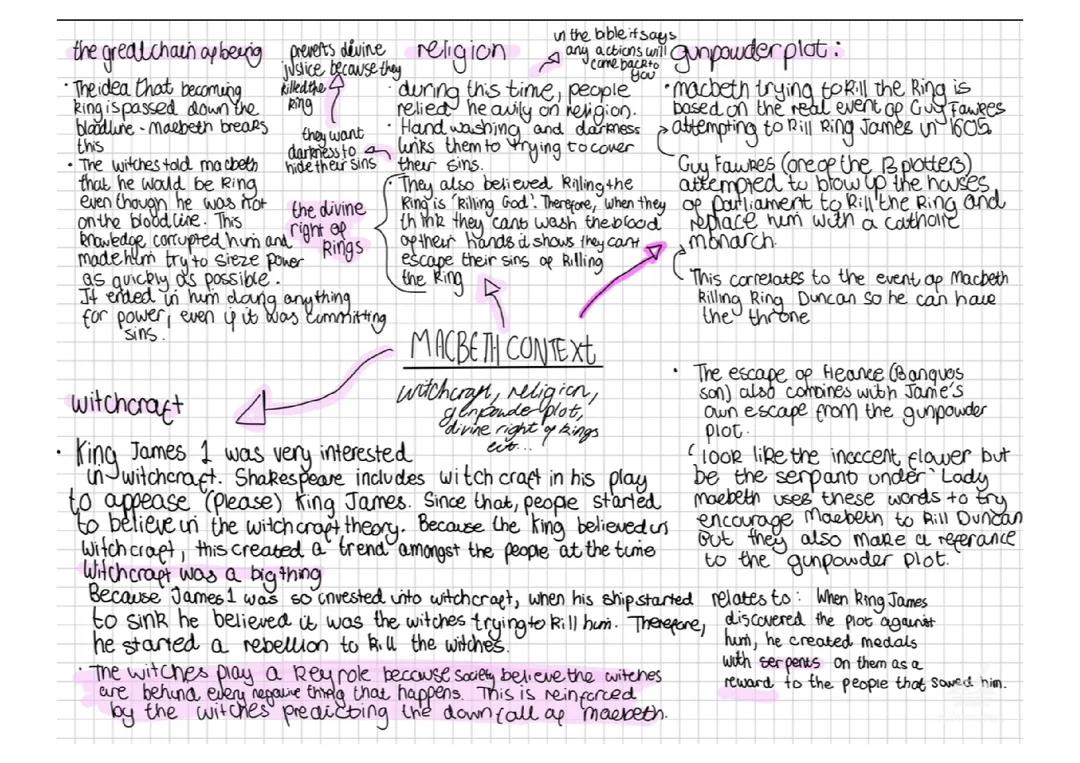 the great chain of being
· The idea that becoming
King is passed down the
bloodline - macbeth breaks
this
· The witches told macbeth
that he would be King
even though he was not
on the bloodline. This
knowledge corrupted him and
made him try to sieze power
as quickly as possible.
It ended in him doing anything
for power, even if it was committing
sins.
prevents divine
justice because they
killed the
King
they want
darkness to
hide their sins
the divine
right of
Kings
religion
in the bible it says
any actions will
come back to
you
· during this time, people
relied heavily on religion.
· Hand washing and darkness
links them to trying to cover
their sins.
· They also believed Killing the
King is 'Killing God'. Therefore, when they
think they cant wash the blood
of their hands it shows they cant
escape their sins of Killing
the King
gunpowder plot:
· macbeth trying to Kill the King is
based on the real event of Guy Fawkes
attempting to Kill King James in 1605
Guy Fawkes (one of the 13 plotters)
attempted to blow up the houses
of parliament to Kill the King and
replace him with a catholic
monarch.
This correlates to the event of Macbeth
Killing King Duncan so he can have
the throne
MACBETH CONTEXT
witchcraft, religion,
gunpowder plot,
divine right of kings
etc...
· The escape of fleance (Banquos
son) also combines with Jame's
own escape from the gunpowder
plot.
'look like the inoccent flower but
be the serpant under' Lady
macbeth uses these words to try
encourage Macbeth to Kill Duncan
but they also make a referance
to the gunpowder plot.
relates to: When King James
discovered the plot against
him, he created medals
with serpents on them as a
reward to the people that saved him.
witchcraft
· King James 1 was very interested
in witchcraft. Shakespeare includes witch craft in his play
to appease (please) King James. Since that, people started
to believe in the witchcraft theory. Because the King believed in
witchcraft, this created a 'trend' amongst the people at the time
Witchcraft was a big thing
Because James 1 was so invested into witchcraft, when his ship started
to sink he believed it was the witches trying to kill him. Therefore,
he started a rebellion to Kill the witches.
· The witches play a Key role because society believe the witches
are behind every negative thing that happens. This is reinforced
by the witches predicting the downfall of macbeth.